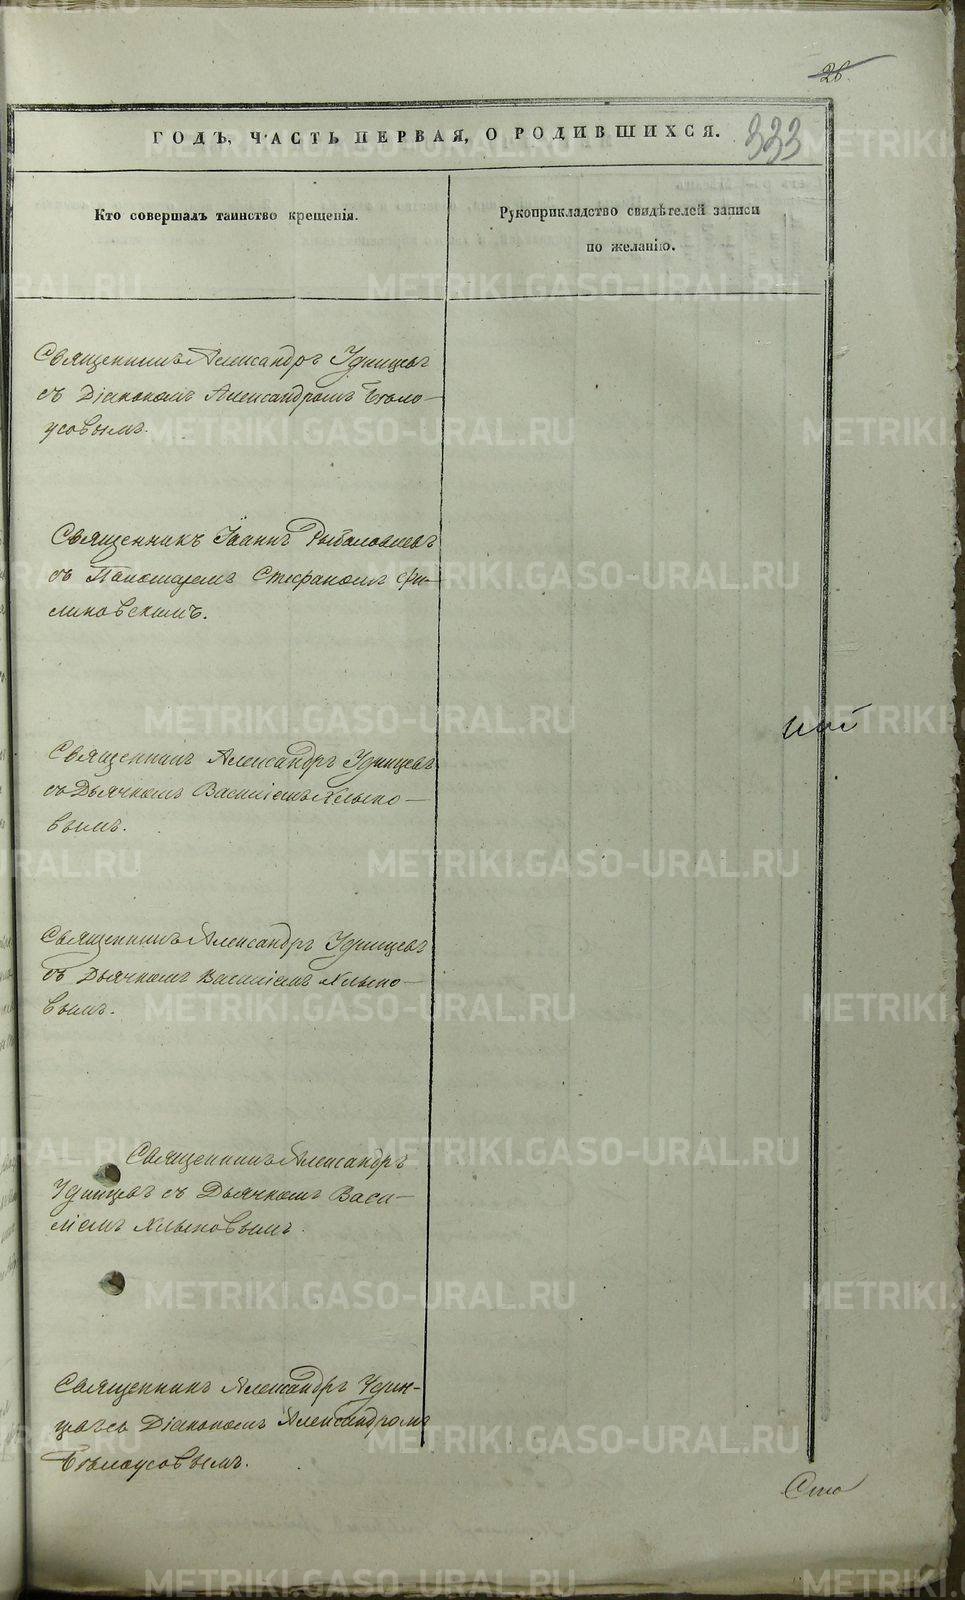 26.
ГОДЪ, ЧАСТЬ ПЕРВАЯ, О РОДИВШИХСЯ.
333
Кто совершалъ таинство крещенія.
Рукоприкладство свидѣтелей записи
по желанію.
Священникъ Александръ Удинцевъ
съ Діакономъ Александромъ Бѣло-
усовымъ.
Священникъ Іоаннъ
съ Пономаремъ Стефаномъ Фи-
линовскимъ.
ной
Священникъ Александръ Удинцевъ
съ Дьячкомъ Василіемъ Хлыно-
вымъ.
Священникъ Александръ Удинцевъ
съ Дьячкомъ Василіемъ Хлыно-
вымъ.
Священникъ Александръ
Удинцевъ съ Дьячкомъ Васи-
ліемъ Хлыновымъ.
Священникъ Александръ Удин-
цевъ съ Діакономъ Александромъ
Бѣлоусовымъ.
METRIKI.GASO-URAL.RU